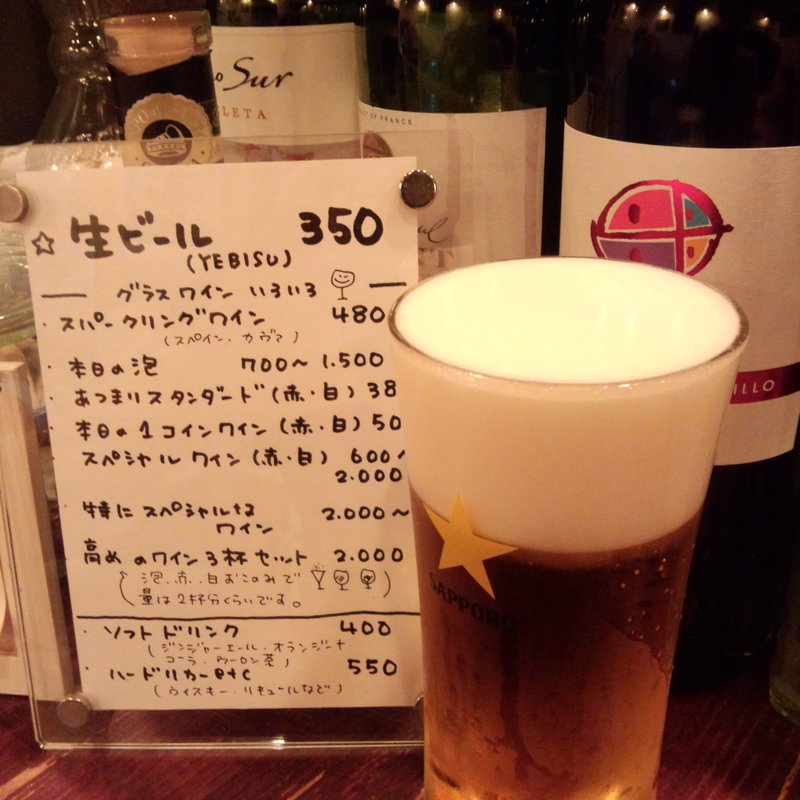 o Sur
LETA
CT OF FRANCE
ILLO
☆ 生ビール 350
(YEBISU)
グラスワイン いろいろ
・スパークリングワイン 480
(スペイン・カヴァ)
・本日の泡 700〜1.500
・あつまりスタンダード(赤・白) 38
・本日の1コインワイン(赤・白) 50
・スペシャルワイン(赤・白) 600〜
2.000
・特にスペシャルな 2.000〜
ワイン
高めのワイン3杯セット 2.000
(泡.赤.白おこのみで
量は2杯分くらいです。)
・ソフトドリンク 400
(ジンジャーエール・オランジーナ
コーラ・ウーロン茶)
・ハードリカーetc 550
(ウィスキー・リキュールなど)
SAPPORO